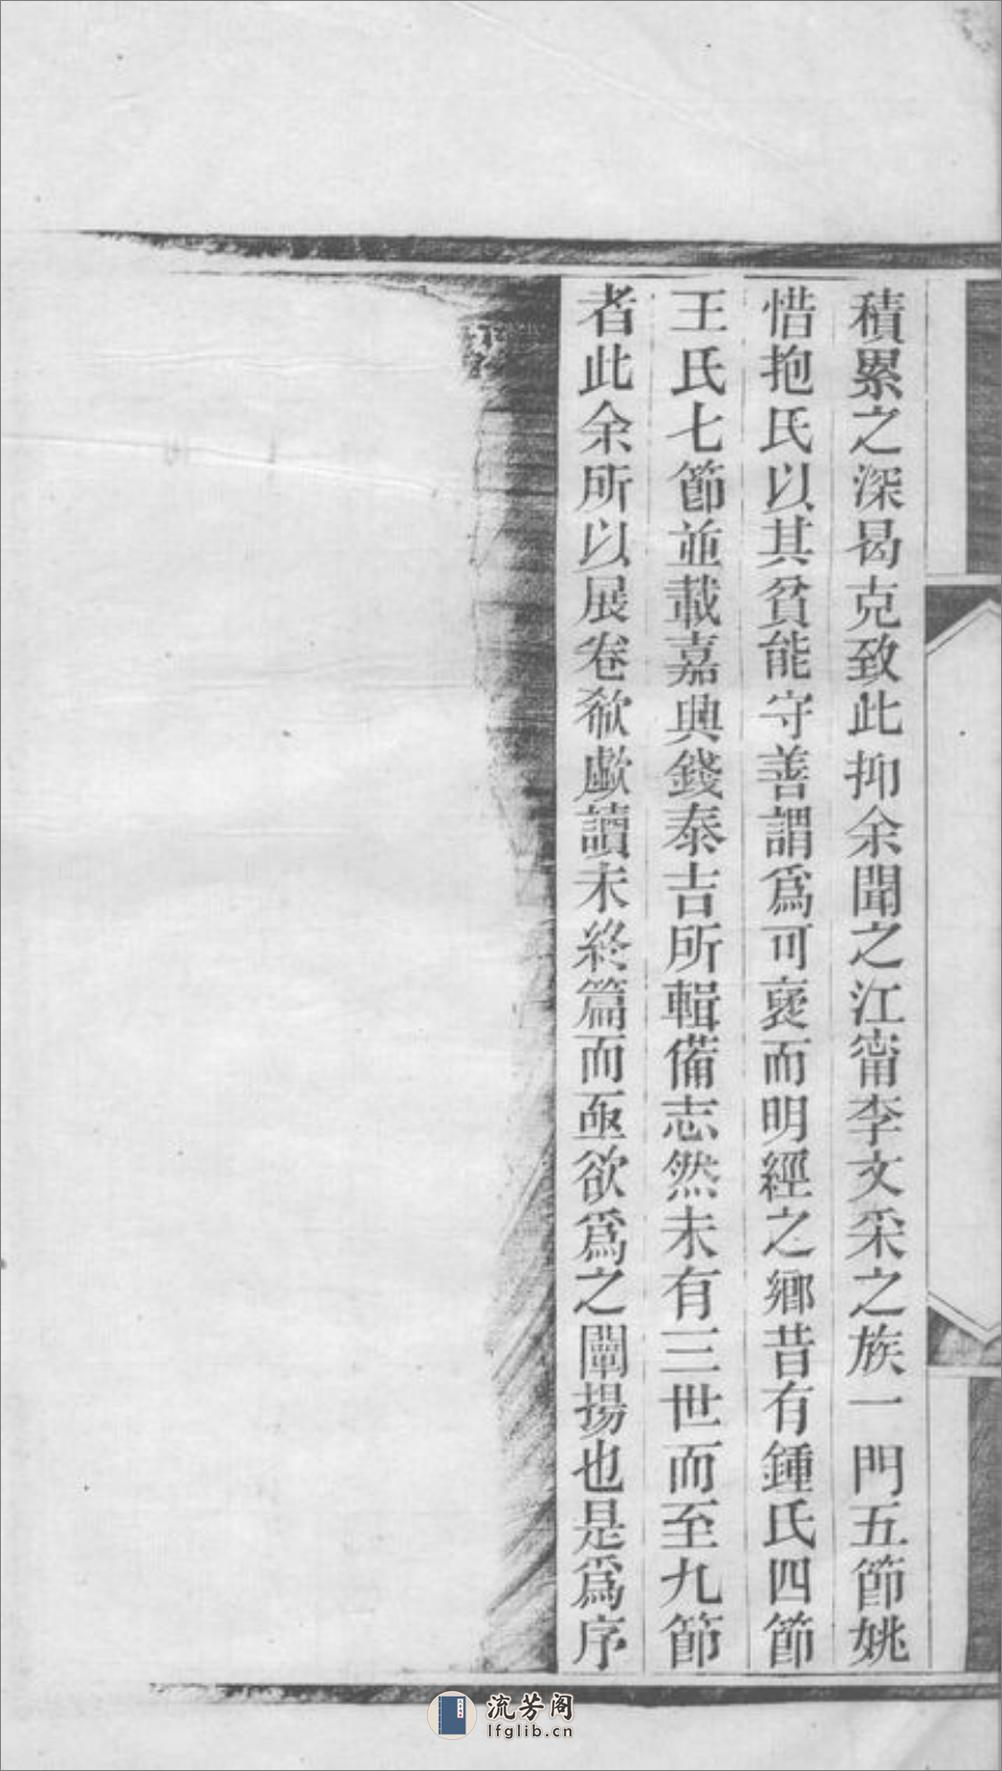 積累之深曷克致此抑余聞之江甯李文采之族一門五節姚
惜抱氏以其貧能守善謂爲可裦而明經之鄉昔有鍾氏四節
王氏七節並載嘉興錢泰吉所輯備志然未有三世而至九節
者此余所以展卷欷歔讀未終篇而亟欲爲之闡揚也是爲序
流芳阁
lfglib.cn